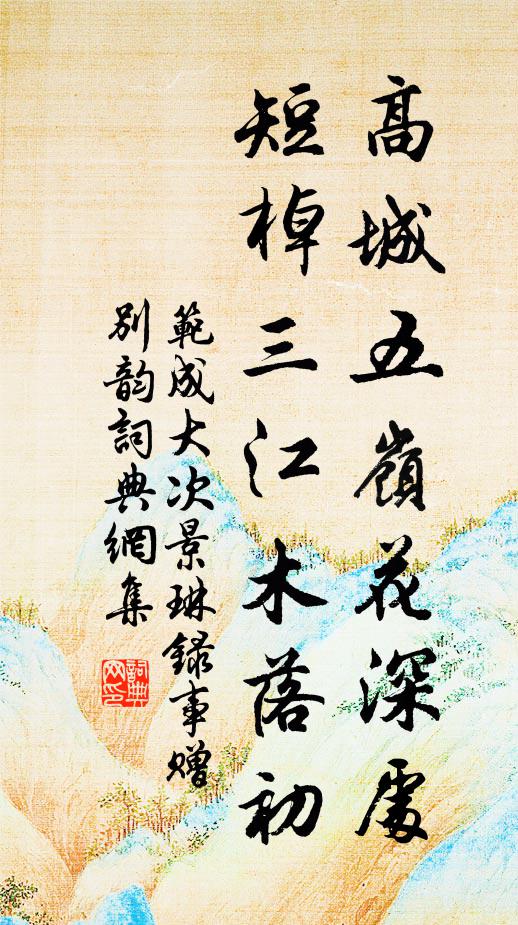 高城五嶺花深處
短棹三江木落初
範成大次景琳錄事贈
別韵詞典網集
詞典网印